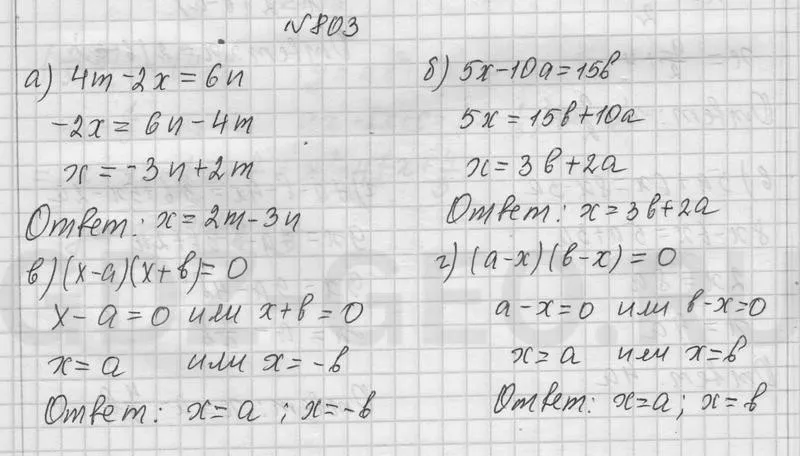 №803
а) 4m - 2x = 6n
-2x = 6n - 4m
x = -3n + 2m
Ответ: x = 2m - 3n
б) 5x - 10a = 15b
5x = 15b + 10a
x = 3b + 2a
Ответ: x = 3b + 2a
в) (x - a)(x + b) = 0
x - a = 0 или x + b = 0
x = a или x = -b
Ответ: x = a ; x = -b
г) (a - x)(b - x) = 0
a - x = 0 или b - x = 0
x = a или x = b
Ответ: x = a ; x = b